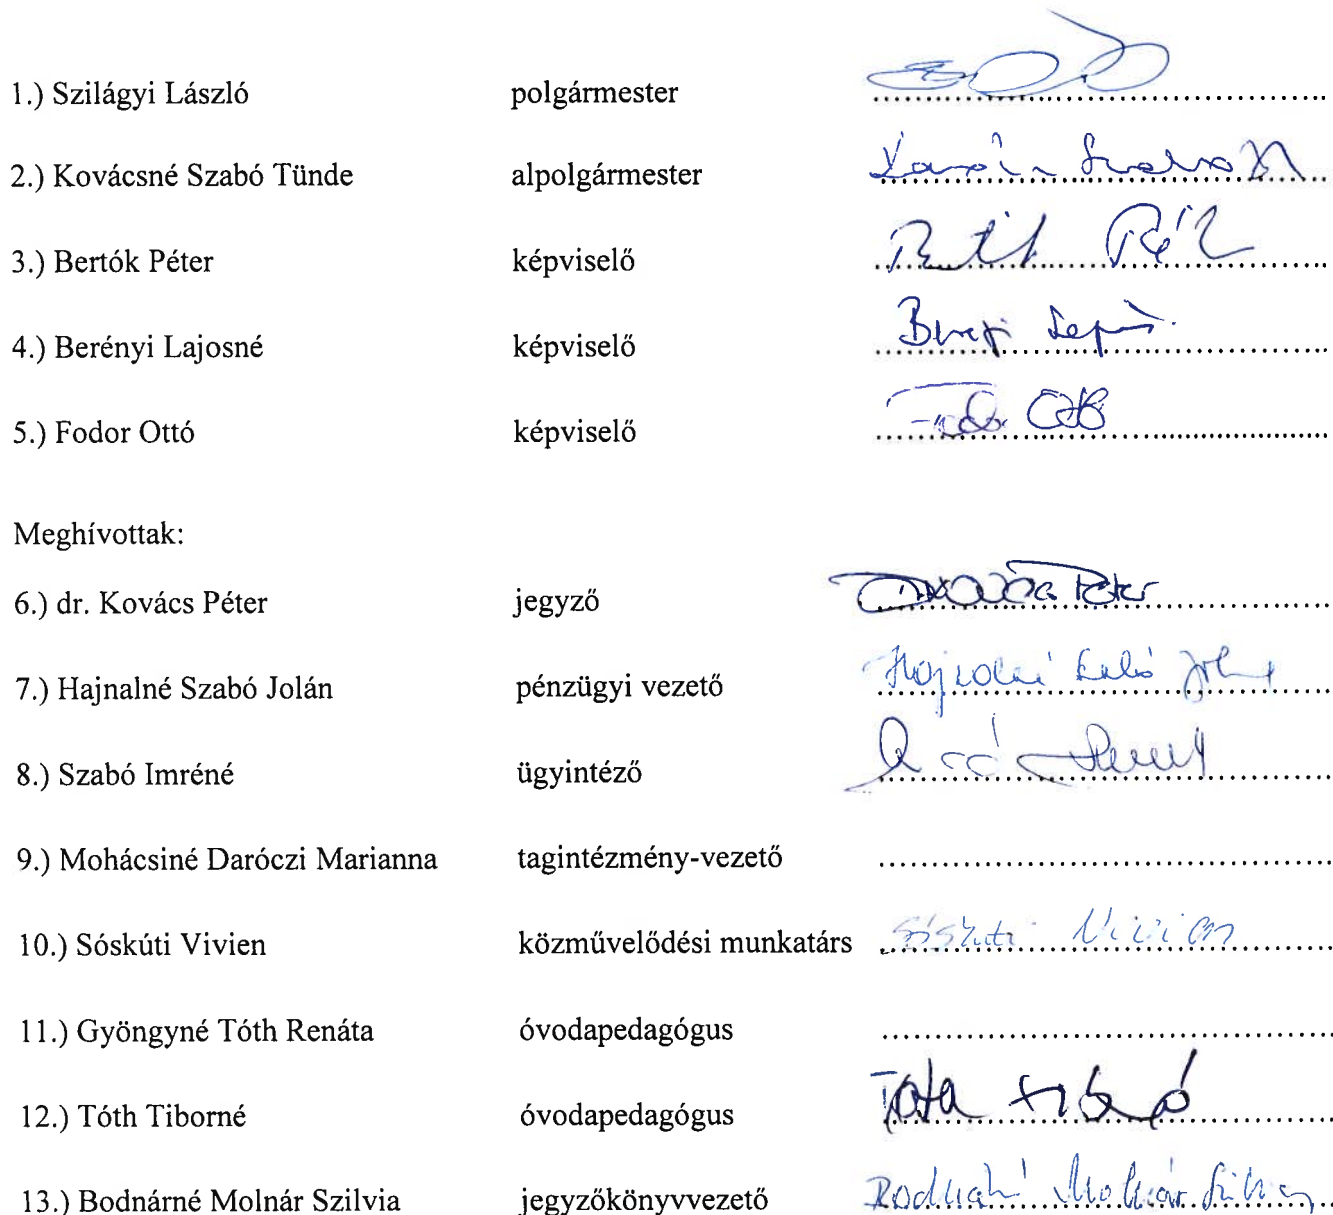 1.) Szilágyi László polgármester
2.) Kovácsné Szabó Tünde alpolgármester
3.) Bertók Péter képviselő
4.) Berényi Lajosné képviselő
5.) Fodor Ottó képviselő
Meghívottak:
6.) dr. Kovács Péter jegyző
7.) Hajnalné Szabó Jolán pénzügyi vezető
8.) Szabó Imréné ügyintéző
9.) Mohácsiné Daróczi Marianna tagintézmény-vezető
10.) Sóskúti Vivien közművelődési munkatárs Sóskuti Vivien
11.) Gyöngyné Tóth Renáta óvodapedagógus
12.) Tóth Tiborné óvodapedagógus
13.) Bodnárné Molnár Szilvia jegyzőkönyvvezető Bodnárné Molnár Szilvia